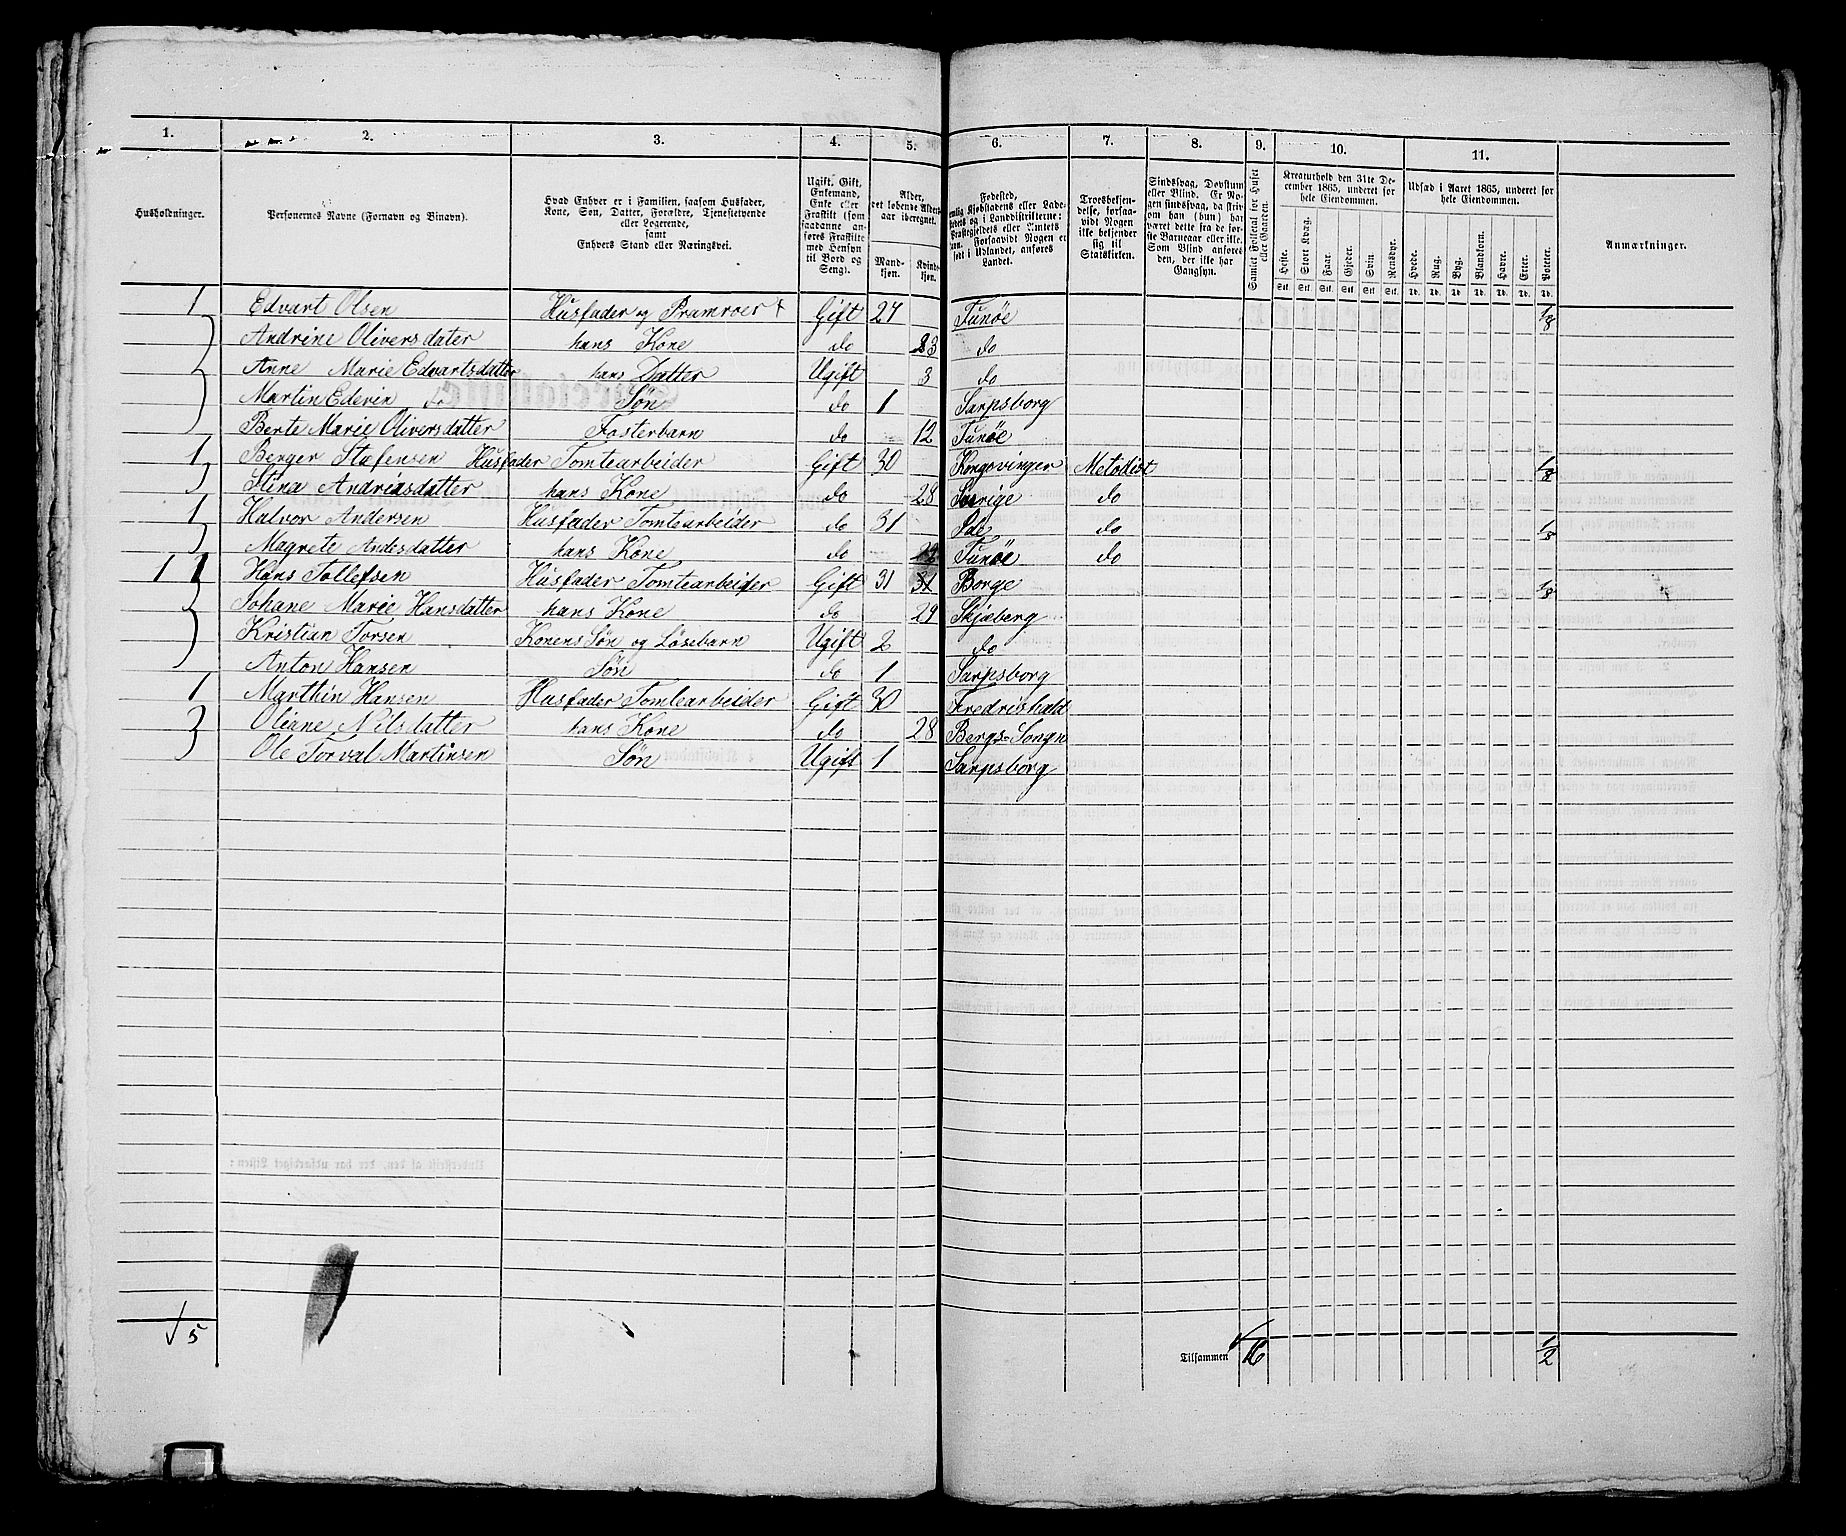 1. 2. 3. 4. 5. 6. 7. 8. 9. 10. 11.
Husholdninger. Personernes Navne (Fornavn og Binavn). Hvad Enhver er i Familien, saasom Husfader, Kone, Søn, Datter, Forældre, Tjenestetyende eller Logerende, samt Enhvers Stand eller Næringsvei. Ugift, Gift, Enkemand, Enke eller Fraskilt (som saadanne anføres Fraskilte med Hensyn til Bord og Seng). Alder, det løbende Alders- aar iberegnet. Mand- kjøn. Kvinde- kjøn. Fødested, Kjøbstadens eller Lade- stedets og i Landdistrikterne: Præstegjeldets eller Amtets Navn. Forsaavidt Nogen er født i Udlandet, anføres Landet. Troesbekjen- delse, forsaa- vidt Nogen ikke bekjender sig til Statskirken. Sindssvag, Døvstum eller Blind. Er No- gen sindssvag, da skriv- es om han (hun) har været dette fra de før- ste Barneaar eller ikke. Som Blind anføres den, der ikke har Gangsyn. Samlet Folketal for Huset eller Gaarden. Kreaturhold den 31te De- cember 1865, underet for hele Eiendommen. Heste. Stort Kvæg. Faar. Gjeder. Svin. Rensdyr. Udsæd i Aaret 1865, underet for hele Eiendommen. Hvede. Rug. Byg. Blandkorn. Havre. Erter. Poteter. Anmærkninger.
Stk. Stk. Stk. Stk. Stk. Stk. Td. Td. Td. Td. Td. Td. Td.
1 Edvart Olsen Husfader og Pramroer Gift 27 Tunøe 1/8
Andrine Oliversdater hans Kone do 23 do
Anne Marie Edvartsdatter hans Datter Ugift 3 do
Martin Ederin do Søn do 1 Sarpsborg
Berte Marie Oliversdatter Fosterbarn do 12 Tunøe
1 Berger Stæfensen Husfader Tomtearbeider Gift 30 Kongovinger Metodist 1/8
Stina Andreasdatter hans Kone do 28 Sverige do
1 Halvor Andersen Husfader Tomtearbeider do 31 Ide do 1/8
Magrete Andesdatter hans Kone do Tunøe do
1 1 Hans Tollefsen Husfader Tomtearbeider Gift 31 31 Borge 1/8
Johane Marie Hansdatter hans Kone do 29 Skjæberg
Kristian Torsen Konens Søn og Løsebarn Ugift 2 do
Anton Hansen Søn do 1 Sarpsborg
1 Marthin Hansen Husfader Tomtearbeider Gift 30 Fredrishald
Oliane Nilsdatter hans Kone do 28 Bergs-Songn
Ole Torval Martinsen Søn Ugift 1 Sarpsborg
5 Tilsammen 16 1/2